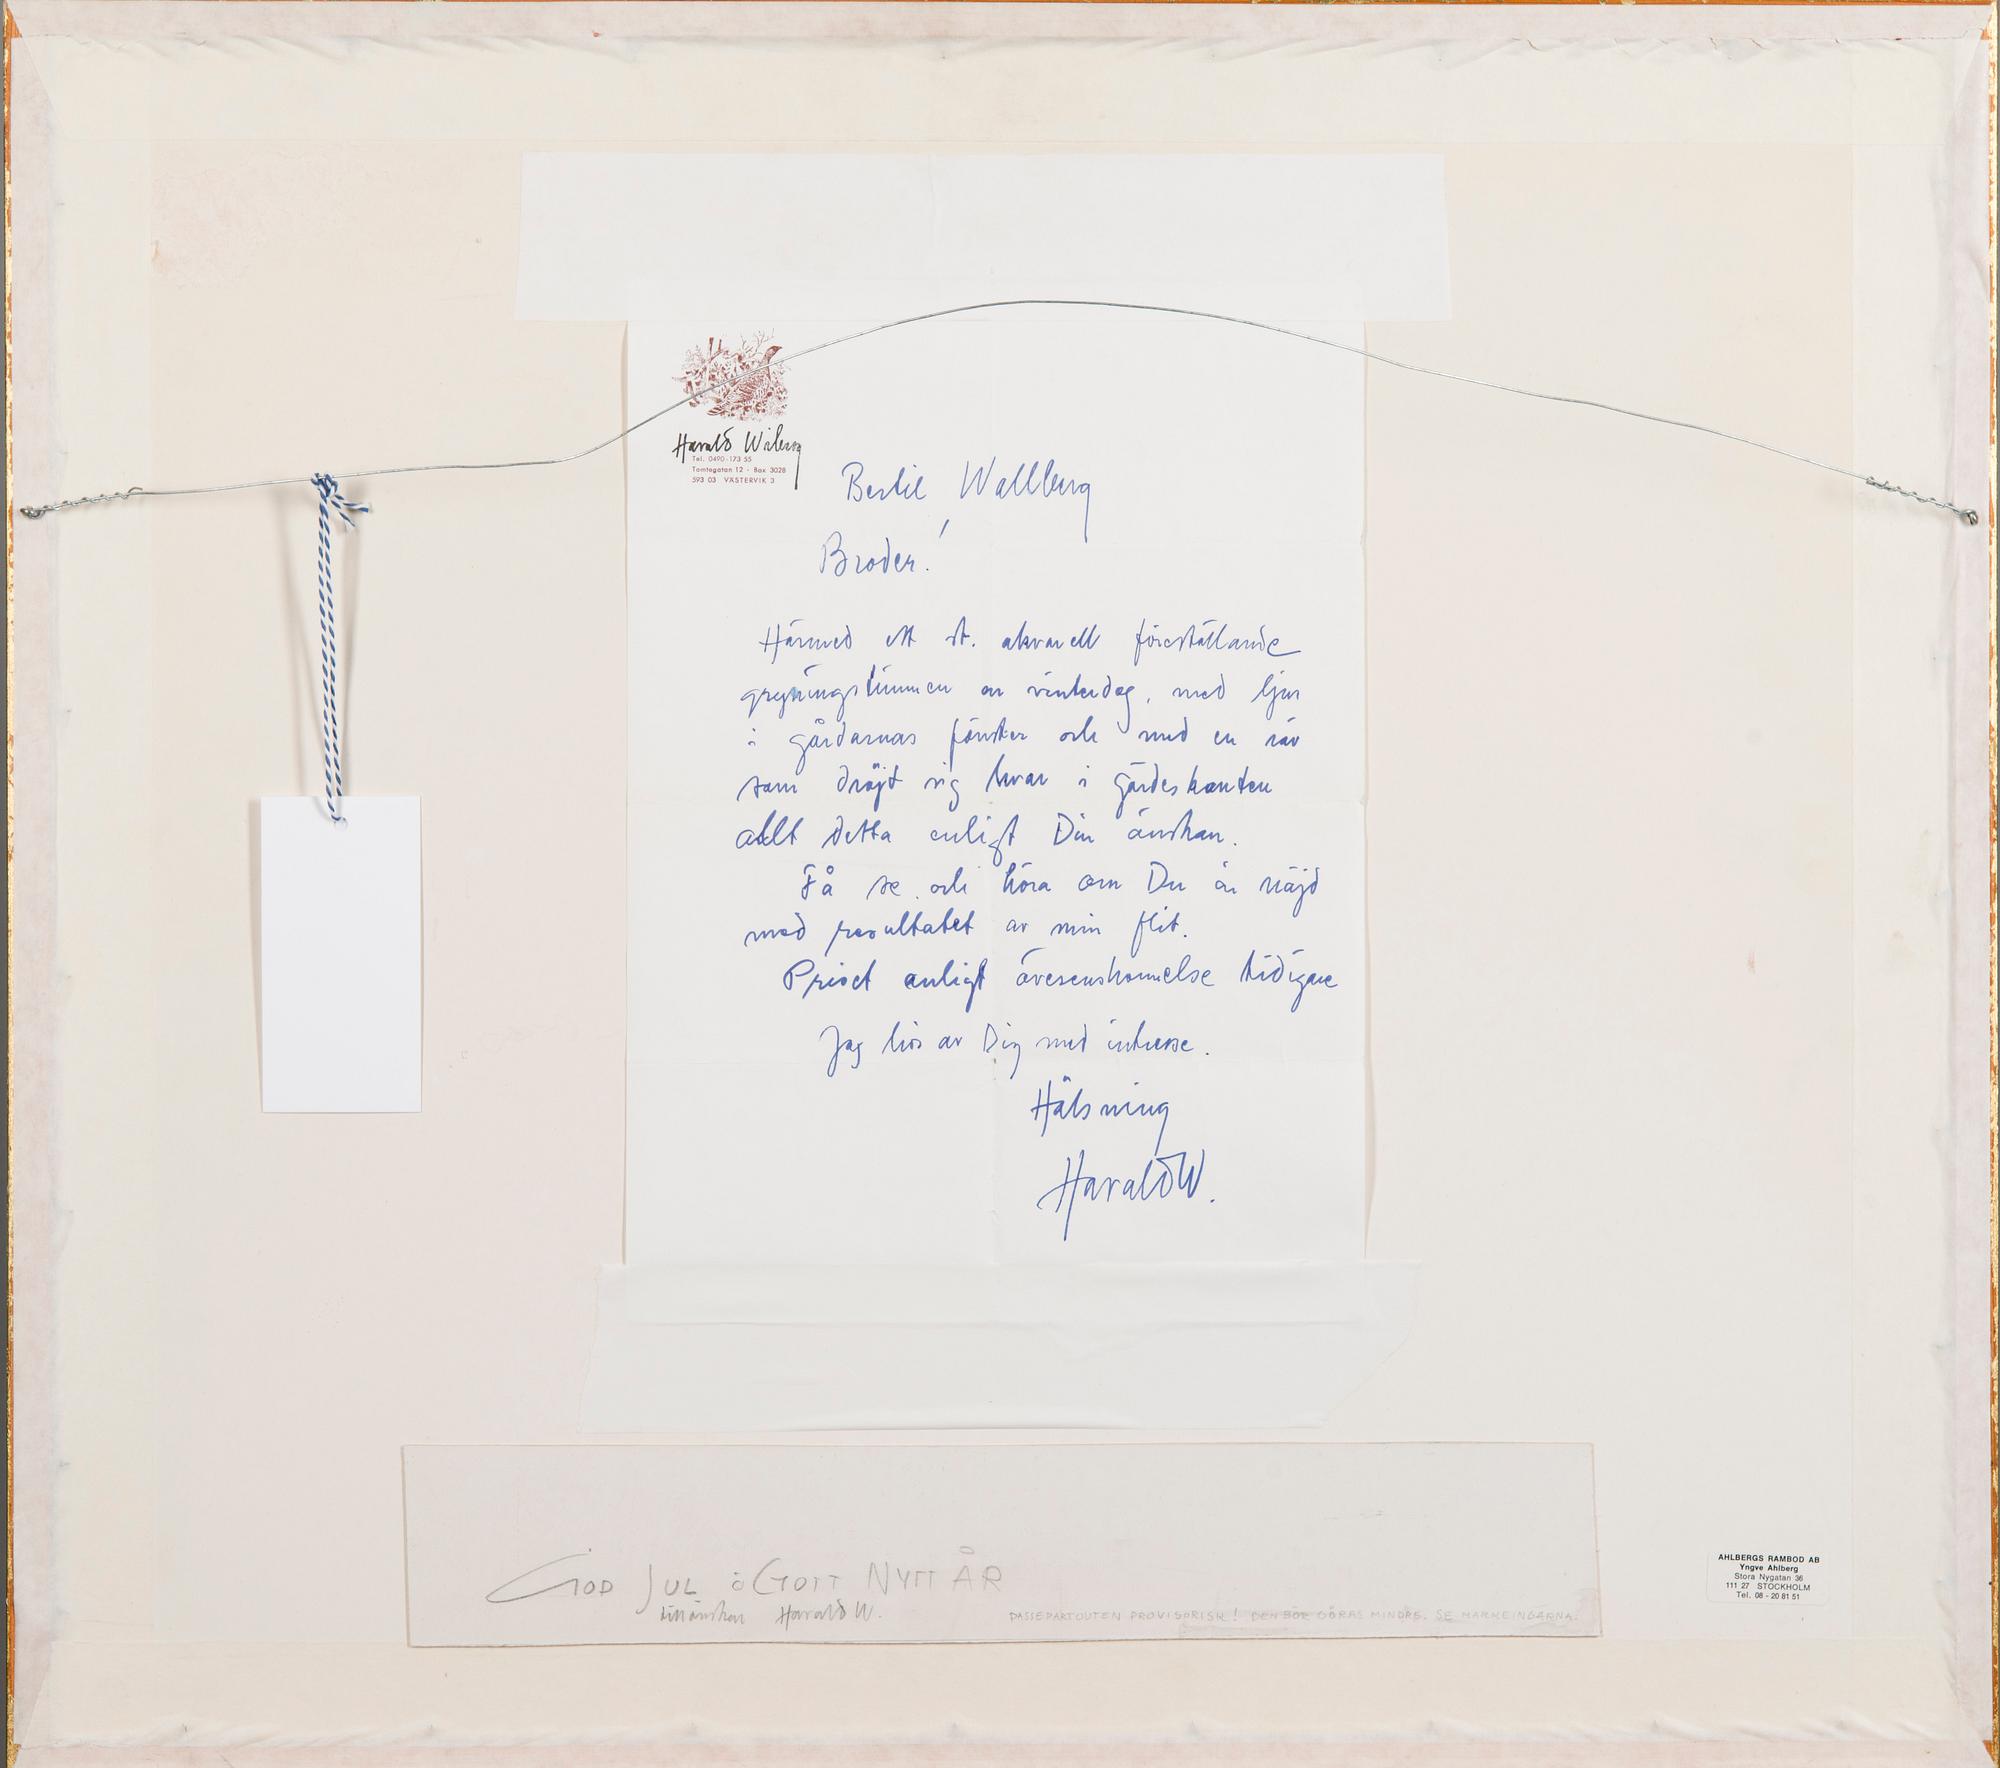 Harald Wiberg
Tel. 0490-173 55
Tomtegatan 12 - Box 3028
593 03 VÄSTERVIK 3
Bertil Wallberg
Broder!
Härmed ett st. akvarell föreställande
gryningstimmen en vinterdag, med ljus
i gårdarnas fönster och med en räv
som dröjt sig kvar i gärdeskanten
allt detta enligt Din önskan.
Få se och höra om Du är nöjd
med resultatet av min flit.
Priset enligt överenskommelse tidigare
Jag hör av Dig med intresse.
Hälsning
Harald W.
GOD JUL o GOTT NYTT ÅR
tillönskar Harald W.
PASSEPARTOUTEN PROVISORISK! DEN BÖR GÖRAS MINDRE. SE MARKERINGARNA.
AHLBERGS RAMBOD AB
Yngve Ahlberg
Stora Nygatan 36
111 27 STOCKHOLM
Tel. 08 - 20 81 51